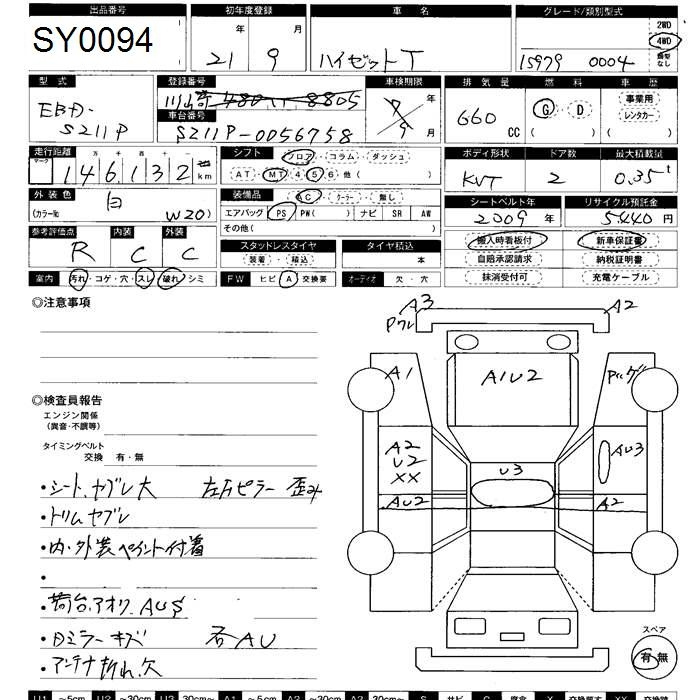 出品番号 初年度登録 車名 グレード/類別型式
SY0094 21年 9月 ハイゼットT 15979 0004 2WD 4WD 類型なし
型式 登録番号 車検期限 排気量 燃料 車歴
EBD-S211P 480 8805 年 9月 660cc G・D ( )( ) 事業用 レンタカー ( )
車台番号
S211P-0056758
走行距離 シフト フロア・コラム・ダッシュ ボディ形状 ドア数 最大積載量
マーク 十万 万 千 百 十 一
146,132 km AT・MT 4 5 6 他( ) KVT 2 0.35t
外装色 装備品 AC・クーラー・無し シートベルト年 リサイクル預託金
白 (カラーNo W20) エアバッグ PS PW( ) ナビ SR AW 2009年 5440円
その他( )
参考評価点 内装 外装 搬入時看板付 新車保証書
R C C スタッドレスタイヤ タイヤ積込 自賠承認請求 納税証明書
装着・積込 本
室内 汚れ・コゲ・穴・スレ・破れ・シミ FW ヒビ A 交換要 オーディオ 欠・穴 抹消受付可 充電ケーブル
◎注意事項
A3 A2
Pクレ
A1 A1U2
◎検査員報告
エンジン関係
(異音・不調等)
タイミングベルト
交換 有・無
A2
U2
XX
U3 AU3
AU2 A2
・シート、ヤブレ大 左Aピラー歪み
・トリムヤブレ
・内・外装ペイント付着
・
・荷台、アオリ、AUS
・Dミラーキズ 各AU
・アンテナ折れ、欠
スペア
有・無
U1 ～5cm U2 ～30cm U3 30cm～ A1 ～5cm A2 ～30cm A3 30cm～ S サビ C 腐食 X 交換要す XX